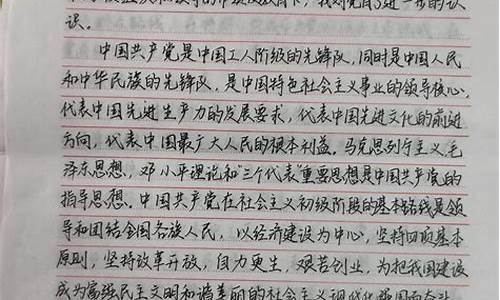 对党有了进一步的认
识。
中国共产党是中国工人阶级的先锋队,同时是中国人民
和中华民族的先锋队,是中国特色社会主义事业的领导核心,
代表中国先进生产力的发展要求,代表中国先进文化的前进
方向,代表中国最广大人民的根本利益。马克思列宁主义、毛
泽东思想,邓小平理论和“三个代表”重要思想是中国共产党的
指导思想。中国共产党在社会主义初级阶段的基本路线是领
导和团结全国各族人民,以经济建设为中心,坚持四项基本
原则,坚持改革开放,自力更生,艰苦创业,为把我国建设
成为富强民主文明和谐美丽的社会主义现代化强国而奋斗